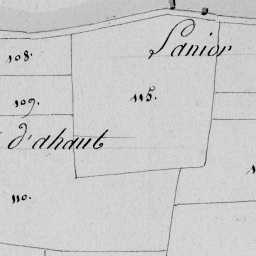 108.
Sanior
115.
109.
d'ahaut
110.